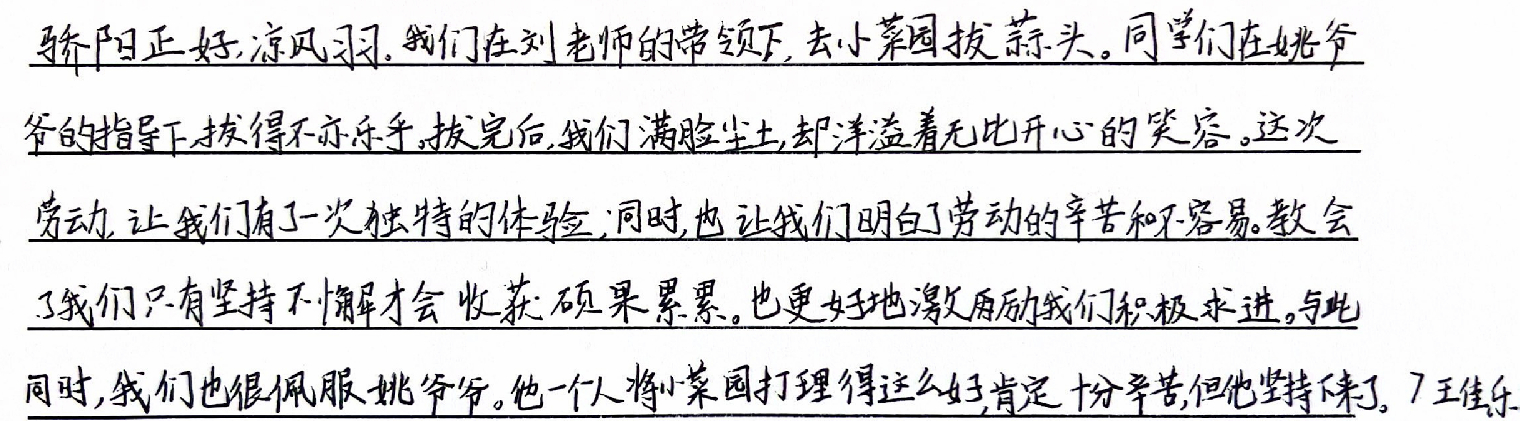 骄阳正好,凉风习习。我们在刘老师的带领下,去小菜园拔蒜头。同学们在姚爷
爷的指导下,拔得不亦乐乎。拔完后,我们满脸尘土,却洋溢着无比开心的笑容。这次
劳动,让我们有了一次独特的体验;同时,也让我们明白了劳动的辛苦和不容易。教会
了我们只有坚持不懈才会收获硕果累累。也更好地激励我们积极求进。与此
同时,我们也很佩服姚爷爷。他一个人将小菜园打理得这么好,肯定十分辛苦,但他坚持下来了。7王佳乐